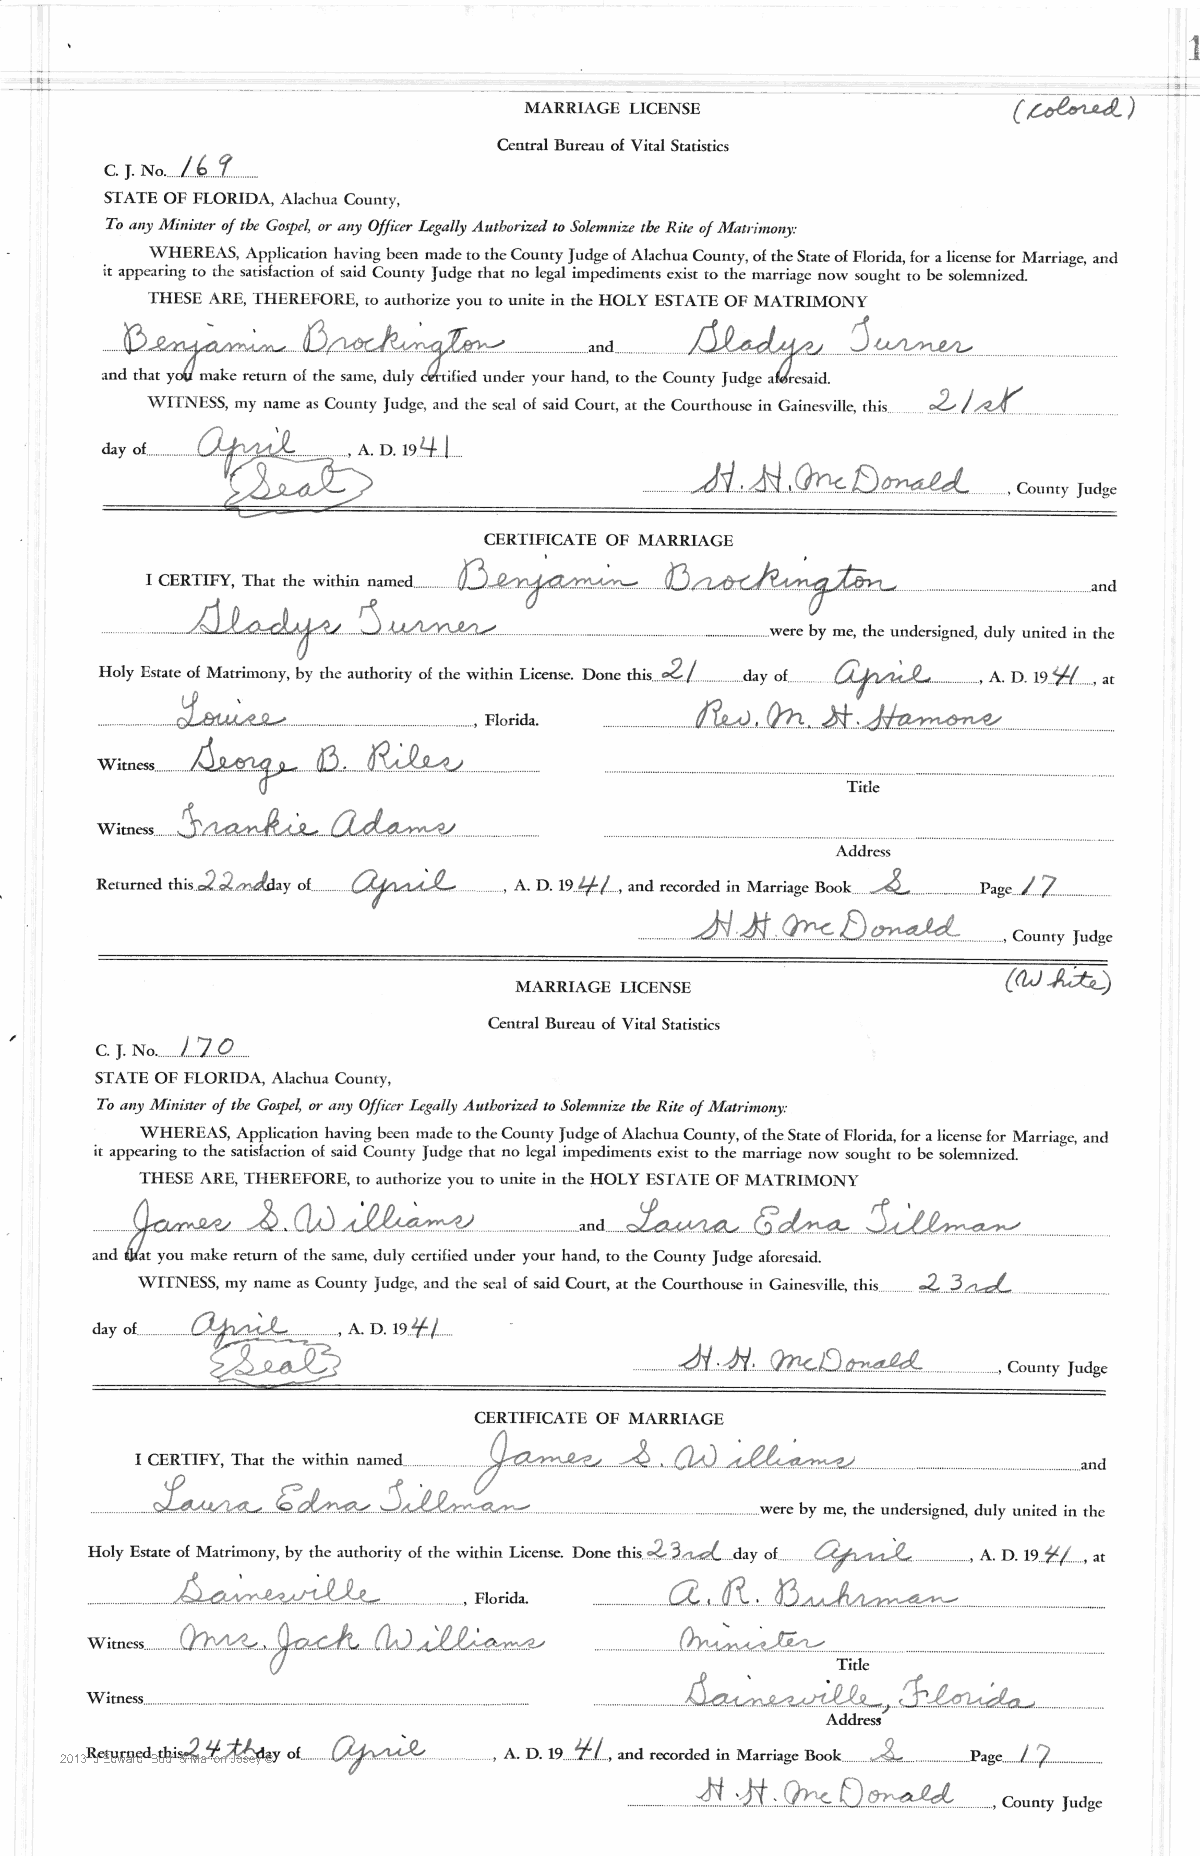 1
MARRIAGE LICENSE (colored)
Central Bureau of Vital Statistics
C. J. No. 169
STATE OF FLORIDA, Alachua County,
To any Minister of the Gospel, or any Officer Legally Authorized to Solemnize the Rite of Matrimony:
WHEREAS, Application having been made to the County Judge of Alachua County, of the State of Florida, for a license for Marriage, and
it appearing to the satisfaction of said County Judge that no legal impediments exist to the marriage now sought to be solemnized.
THESE ARE, THEREFORE, to authorize you to unite in the HOLY ESTATE OF MATRIMONY
Benjamin Brockington and Gladys Turner
and that you make return of the same, duly certified under your hand, to the County Judge aforesaid.
WITNESS, my name as County Judge, and the seal of said Court, at the Courthouse in Gainesville, this 21st
day of April, A. D. 1941
(Seal) H. H. McDonald, County Judge
CERTIFICATE OF MARRIAGE
I CERTIFY, That the within named Benjamin Brockington and
Gladys Turner were by me, the undersigned, duly united in the
Holy Estate of Matrimony, by the authority of the within License. Done this 21 day of April, A. D. 1941, at
Louise, Florida. Rev. M. H. Hamons
Witness George B. Riles
Title
Witness Frankie Adams
Address
Returned this 22nd day of April, A. D. 1941, and recorded in Marriage Book S Page 17
H. H. McDonald, County Judge
MARRIAGE LICENSE (White)
Central Bureau of Vital Statistics
C. J. No. 170
STATE OF FLORIDA, Alachua County,
To any Minister of the Gospel, or any Officer Legally Authorized to Solemnize the Rite of Matrimony:
WHEREAS, Application having been made to the County Judge of Alachua County, of the State of Florida, for a license for Marriage, and
it appearing to the satisfaction of said County Judge that no legal impediments exist to the marriage now sought to be solemnized.
THESE ARE, THEREFORE, to authorize you to unite in the HOLY ESTATE OF MATRIMONY
James S. Williams and Laura Edna Tillman
and that you make return of the same, duly certified under your hand, to the County Judge aforesaid.
WITNESS, my name as County Judge, and the seal of said Court, at the Courthouse in Gainesville, this 23rd
day of April, A. D. 1941
(Seal) H. H. McDonald, County Judge
CERTIFICATE OF MARRIAGE
I CERTIFY, That the within named James S. Williams and
Laura Edna Tillman were by me, the undersigned, duly united in the
Holy Estate of Matrimony, by the authority of the within License. Done this 23rd day of April, A. D. 1941, at
Gainesville, Florida. A. R. Buhrman
Witness Mrs. Jack Williams Minister
Title
Witness Gainesville, Florida
Address
Returned this 24th day of April, A. D. 1941, and recorded in Marriage Book S Page 17
H. H. McDonald, County Judge